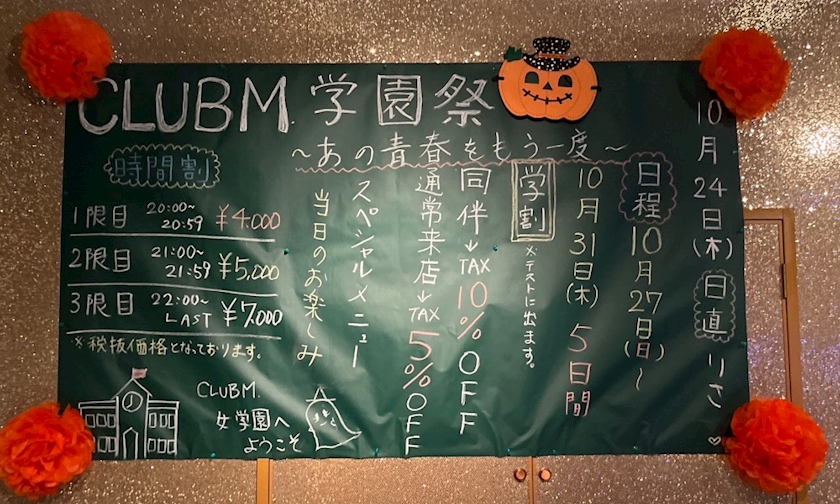 CLUBM. 学園祭
～あの青春をもう一度～
10月24日(木) 日直 りさ♡
日程 10月27日(日)～
10月31日(木) 5日間
学割 ※テストに出ます。
同伴→TAX10%OFF
通常来店→TAX5%OFF
スペシャルメニュー
当日のお楽しみ
時間割
1限目 20:00~20:59 ¥4.000
2限目 21:00~21:59 ¥5,000
3限目 22:00~LAST ¥7,000
※税抜価格となっております。
CLUBM.
女学園へ
ようこそ